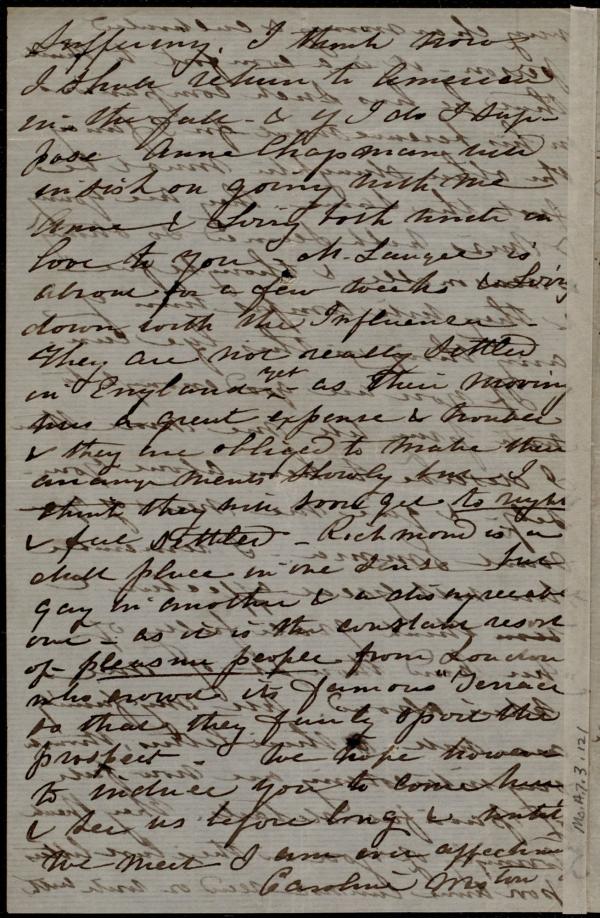 Suffering. I think now
I shall return to America
in the fall - & if I do I sup-
pose Anne Chapman will
insish on going with me
Anne & Lizzy both unite in
love to you - M. Laugel is
about for a few weeks & Lizzy
down with the Influenza -
They are not really settled
in England yet - as their moving
was a great expense & trouble
& they are obliged to make their
arrangements slowly but I
think they will soon get to rights
& feel settled - Richmond is a
dull place in one sense but
gay in another & a disagreeable
one - as it is the constant resort
of pleasure people from London
who crowd its famous "Terrace
so that they fairly spoil the
prospect - We hope however
to induce you to come here
& see us before long & until
we meet I am ever affection
Caroline Weston
Ms.A.7.3.121